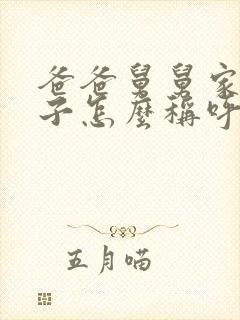 爸爸舅舅家
子怎麼稱呼
五月喵